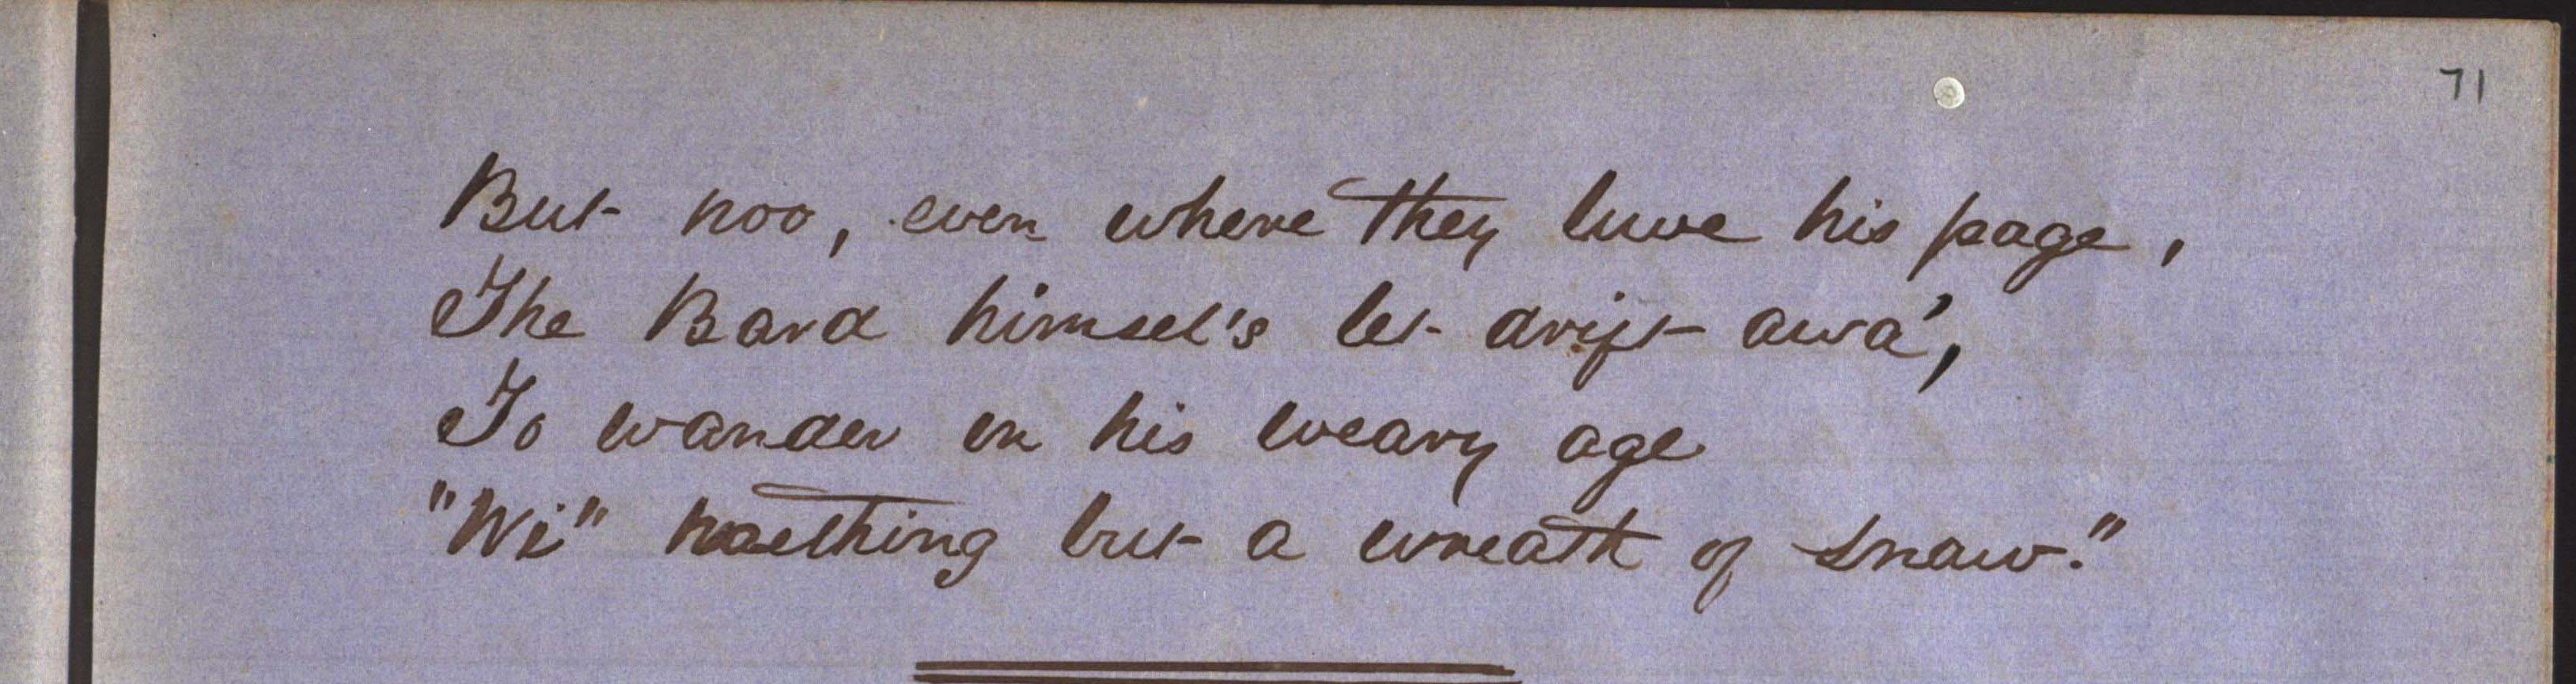 71
But noo, even where they luve his page,
The Bard himsel's let drift awa',
To wander in his weary age
"Wi" naething but a wreath of snaw."